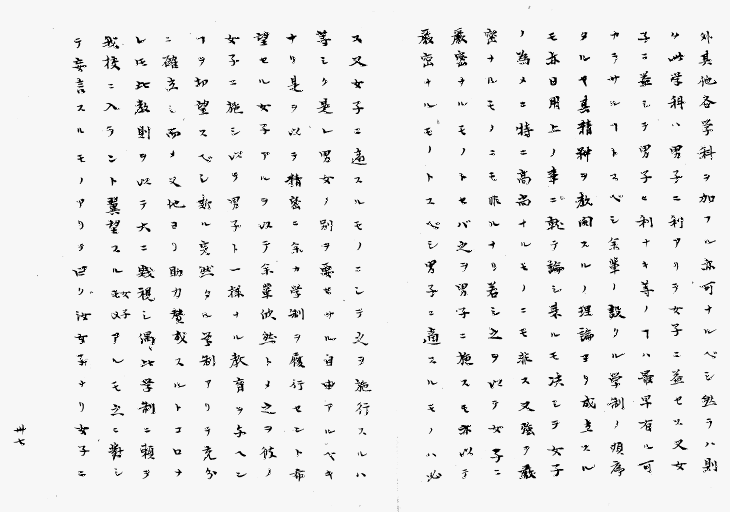 外其他各学科ヲ加フル亦可ナルベシ然ラハ則
ハ此学科ハ男子ニ利アリテ女子ニ益セス又女
子ニ益シテ男子ニ利ナキ等ノ丁ハ最早有ル可
カラサル丁トスベシ余輩ノ設クル学制ノ順序
タルヤ真精神ヲ教開スルノ理論ヨリ成立スル
モ亦日用上ノ事ニ就テ論シ来ルモ决シテ女子
ノ為メニ特ニ高尚ナルモノニモ非ス又強テ厳
密ナルモノニモ非ルナリ若シ之ヲ以テ女子ニ
厳密ナルモノトセバ之ヲ男子ニ施スモ亦以テ
厳密ナルモノトスベシ男子ニ適スルモノハ必
ス又女子ニ適スルモノニシテ之ヲ施行スルハ
等シク是レ男女ノ別ヲ要セサル自由アルベキ
ナリ是ヲ以テ精密ニ余カ学制ヲ履行セント希
望セル女子アルヲ以テ余輩欣然トメ之ヲ彼ノ
女子ニ施シ以テ男子ト一様ナル教育ヲ与ヘン
丁ヲ切望スベシ斯ル完然タル学制アリテ充分
ニ確立シ而メ又他ヨリ助力賛成スルトコロナ
レ𪜈此教則ヲ以テ大ニ蔑視シ偶比学制ニ頼ヲ
我校ニ入ラント冀望スルモノアルモ之ニ對シ
テ妄言スルモノアリテ曰ク汝女子ナリ女子ニ
卅七